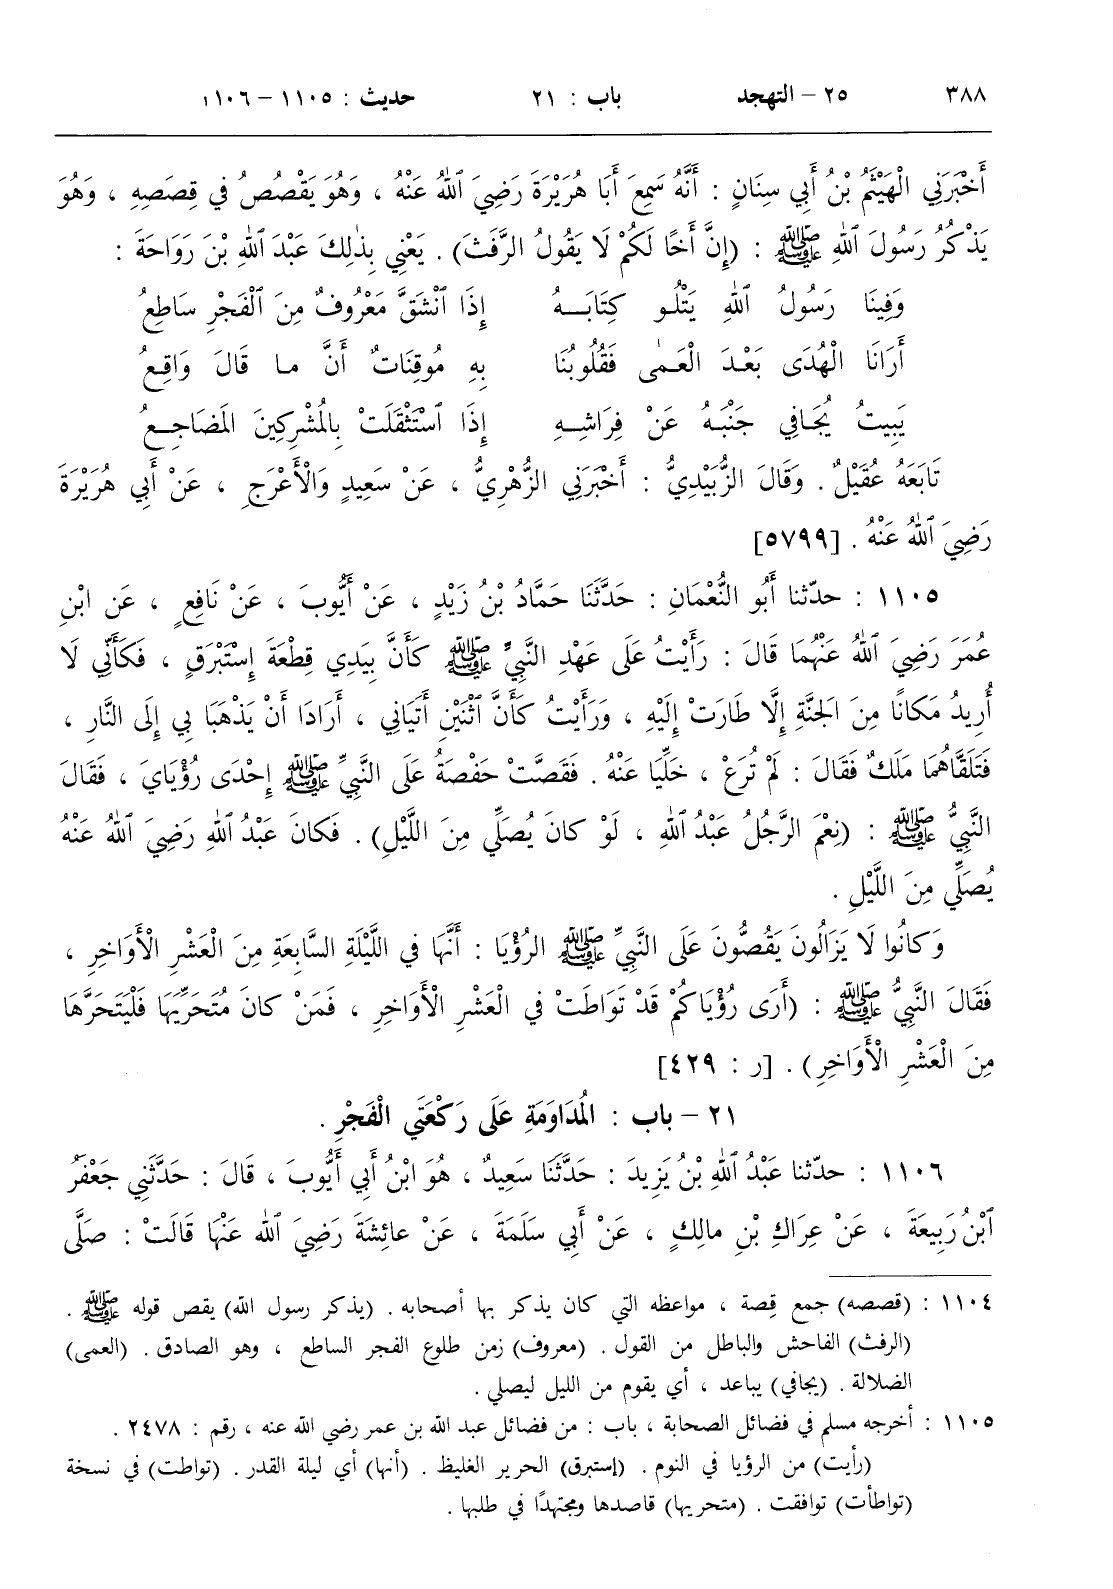 ٣٨٨ ٢٥ – التهجد باب : ٢١ حديث : ١١٠٥ – ١١٠٦
أَخْبَرَنِي الْهَيْثَمُ بْنُ أَبِي سِنَانٍ : أَنَّهُ سَمِعَ أَبَا هُرَيْرَةَ رَضِيَ ٱللهُ عَنْهُ ، وَهُوَ يَقْصُصُ فِي قِصَصِهِ ، وَهُوَ
يَذْكُرُ رَسُولَ ٱللهِ ﷺ : (إِنَّ أَخًا لَكُمْ لَا يَقُولُ الرَّفَثَ) . يَعْنِي بِذٰلِكَ عَبْدَ ٱللهِ بْنَ رَوَاحَةَ :
وَفِينَا رَسُولُ ٱللهِ يَتْلُو كِتَابَـهُ إِذَا ٱنْشَقَّ مَعْرُوفٌ مِنَ ٱلْفَجْرِ سَاطِعُ
أَرَانَا الْهُدَى بَعْدَ الْعَمٰى فَقُلُوبُنَا بِهِ مُوقِنَاتٌ أَنَّ ما قَالَ وَاقِعُ
يَبِيتُ يُجَافِي جَنْبَهُ عَنْ فِرَاشِهِ إِذَا ٱسْتَثْقَلَتْ بِالْمُشْرِكِينَ المَضَاجِعُ
تَابَعَهُ عُقَيْلٌ . وَقَالَ الزُّبَيْدِيُّ : أَخْبَرَنِي الزُّهْرِيُّ ، عَنْ سَعِيدٍ وَالْأَعْرَجِ ، عَنْ أَبِي هُرَيْرَةَ
رَضِيَ ٱللهُ عَنْهُ . [٥٧٩٩]
١١٠٥ : حدّثنا أَبُو النُّعْمَانِ : حَدَّثَنَا حَمَّادُ بْنُ زَيْدٍ ، عَنْ أَيُّوبَ ، عَنْ نَافِعٍ ، عَنِ ابْنِ
عُمَرَ رَضِيَ ٱللهُ عَنْهُمَا قَالَ : رَأَيْتُ عَلَى عَهْدِ النَّبِيِّ ﷺ كَأَنَّ بِيَدِي قِطْعَةَ إِسْتَبْرَقٍ ، فَكَأَنِّي لَا
أُرِيدُ مَكَانًا مِنَ الجَنَّةِ إِلَّا طَارَتْ إِلَيْهِ ، وَرَأَيْتُ كَأَنَّ ٱثْنَيْنِ أَتَيَانِي ، أَرَادَا أَنْ يَذْهَبَا بِي إِلَى النَّارِ ،
فَتَلَقَّاهُمَا مَلَكٌ فَقَالَ : لَمْ تُرَعْ ، خَلِّيَا عَنْهُ . فَقَصَّتْ حَفْصَةُ عَلَى النَّبِيِّ ﷺ إِحْدَى رُؤْيَايَ ، فَقَالَ
النَّبِيُّ ﷺ : (نِعْمَ الرَّجُلُ عَبْدُ ٱللهِ ، لَوْ كانَ يُصَلِّي مِنَ اللَّيْلِ) . فَكانَ عَبْدُ ٱللهِ رَضِيَ ٱللهُ عَنْهُ
يُصَلِّي مِنَ اللَّيْلِ .
وَكانُوا لَا يَزَالُونَ يَقُصُّونَ عَلَى النَّبِيِّ ﷺ الرُّؤْيَا : أَنَّهَا فِي اللَّيْلَةِ السَّابِعَةِ مِنَ الْعَشْرِ الْأَوَاخِرِ ،
فَقَالَ النَّبِيُّ ﷺ : (أَرَى رُؤْيَاكُمْ قَدْ تَوَاطَتْ فِي الْعَشْرِ الْأَوَاخِرِ ، فَمَنْ كانَ مُتَحَرِّيَهَا فَلْيَتَحَرَّهَا
مِنَ الْعَشْرِ الْأَوَاخِرِ) . [ر : ٤٢٩]
٢١ – باب : الْمُدَاوَمَةِ عَلَى رَكْعَتَيِ الْفَجْرِ .
١١٠٦ : حدّثنا عَبْدُ ٱللهِ بْنُ يَزِيدَ : حَدَّثَنَا سَعِيدٌ ، هُوَ ابْنُ أَبِي أَيُّوبَ ، قَالَ : حَدَّثَنِي جَعْفَرُ
ٱبْنُ رَبِيعَةَ ، عَنْ عِرَاكِ بْنِ مالِكٍ ، عَنْ أَبِي سَلَمَةَ ، عَنْ عائِشَةَ رَضِيَ ٱللهُ عَنْهَا قَالَتْ : صَلَّى
١١٠٤ : (قصصه) جمع قِصة ، مواعظه التي كان يذكر بها أصحابه . (يذكر رسول الله) يقص قوله ﷺ .
(الرفث) الفاحش والباطل من القول . (معروف) زمن طلوع الفجر الساطع ، وهو الصادق . (العمى)
الضلالة . (يجافي) يباعد ، أي يقوم من الليل ليصلي .
١١٠٥ : أخرجه مسلم في فضائل الصحابة ، باب : من فضائل عبد الله بن عمر رضي الله عنه ، رقم : ٢٤٧٨ .
(رأيت) من الرؤيا في النوم . (إستبرق) الحرير الغليظ . (أنها) أي ليلة القدر . (تواطت) في نسخة
(تواطأت) توافقت . (متحريها) قاصدها ومجتهدًا في طلبها .